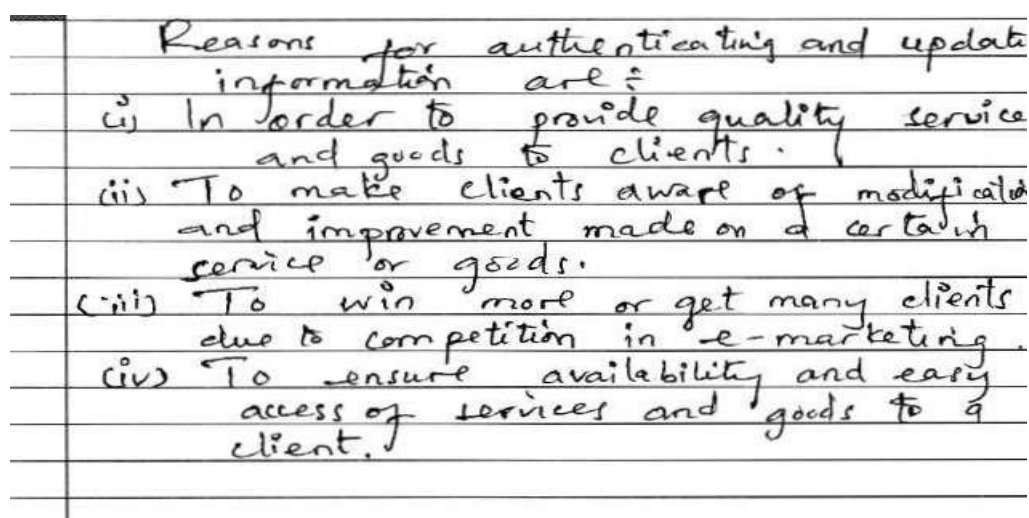 Reasons for authenticating and updati
information are:
(i) In order to provide quality service
and goods to clients.
(ii) To make clients aware of modificatio
and improvement made on a certain
service or goods.
(iii) To win more or get many clients
due to competition in e-marketing.
(iv) To ensure availability and easy
access of services and goods to a
client.